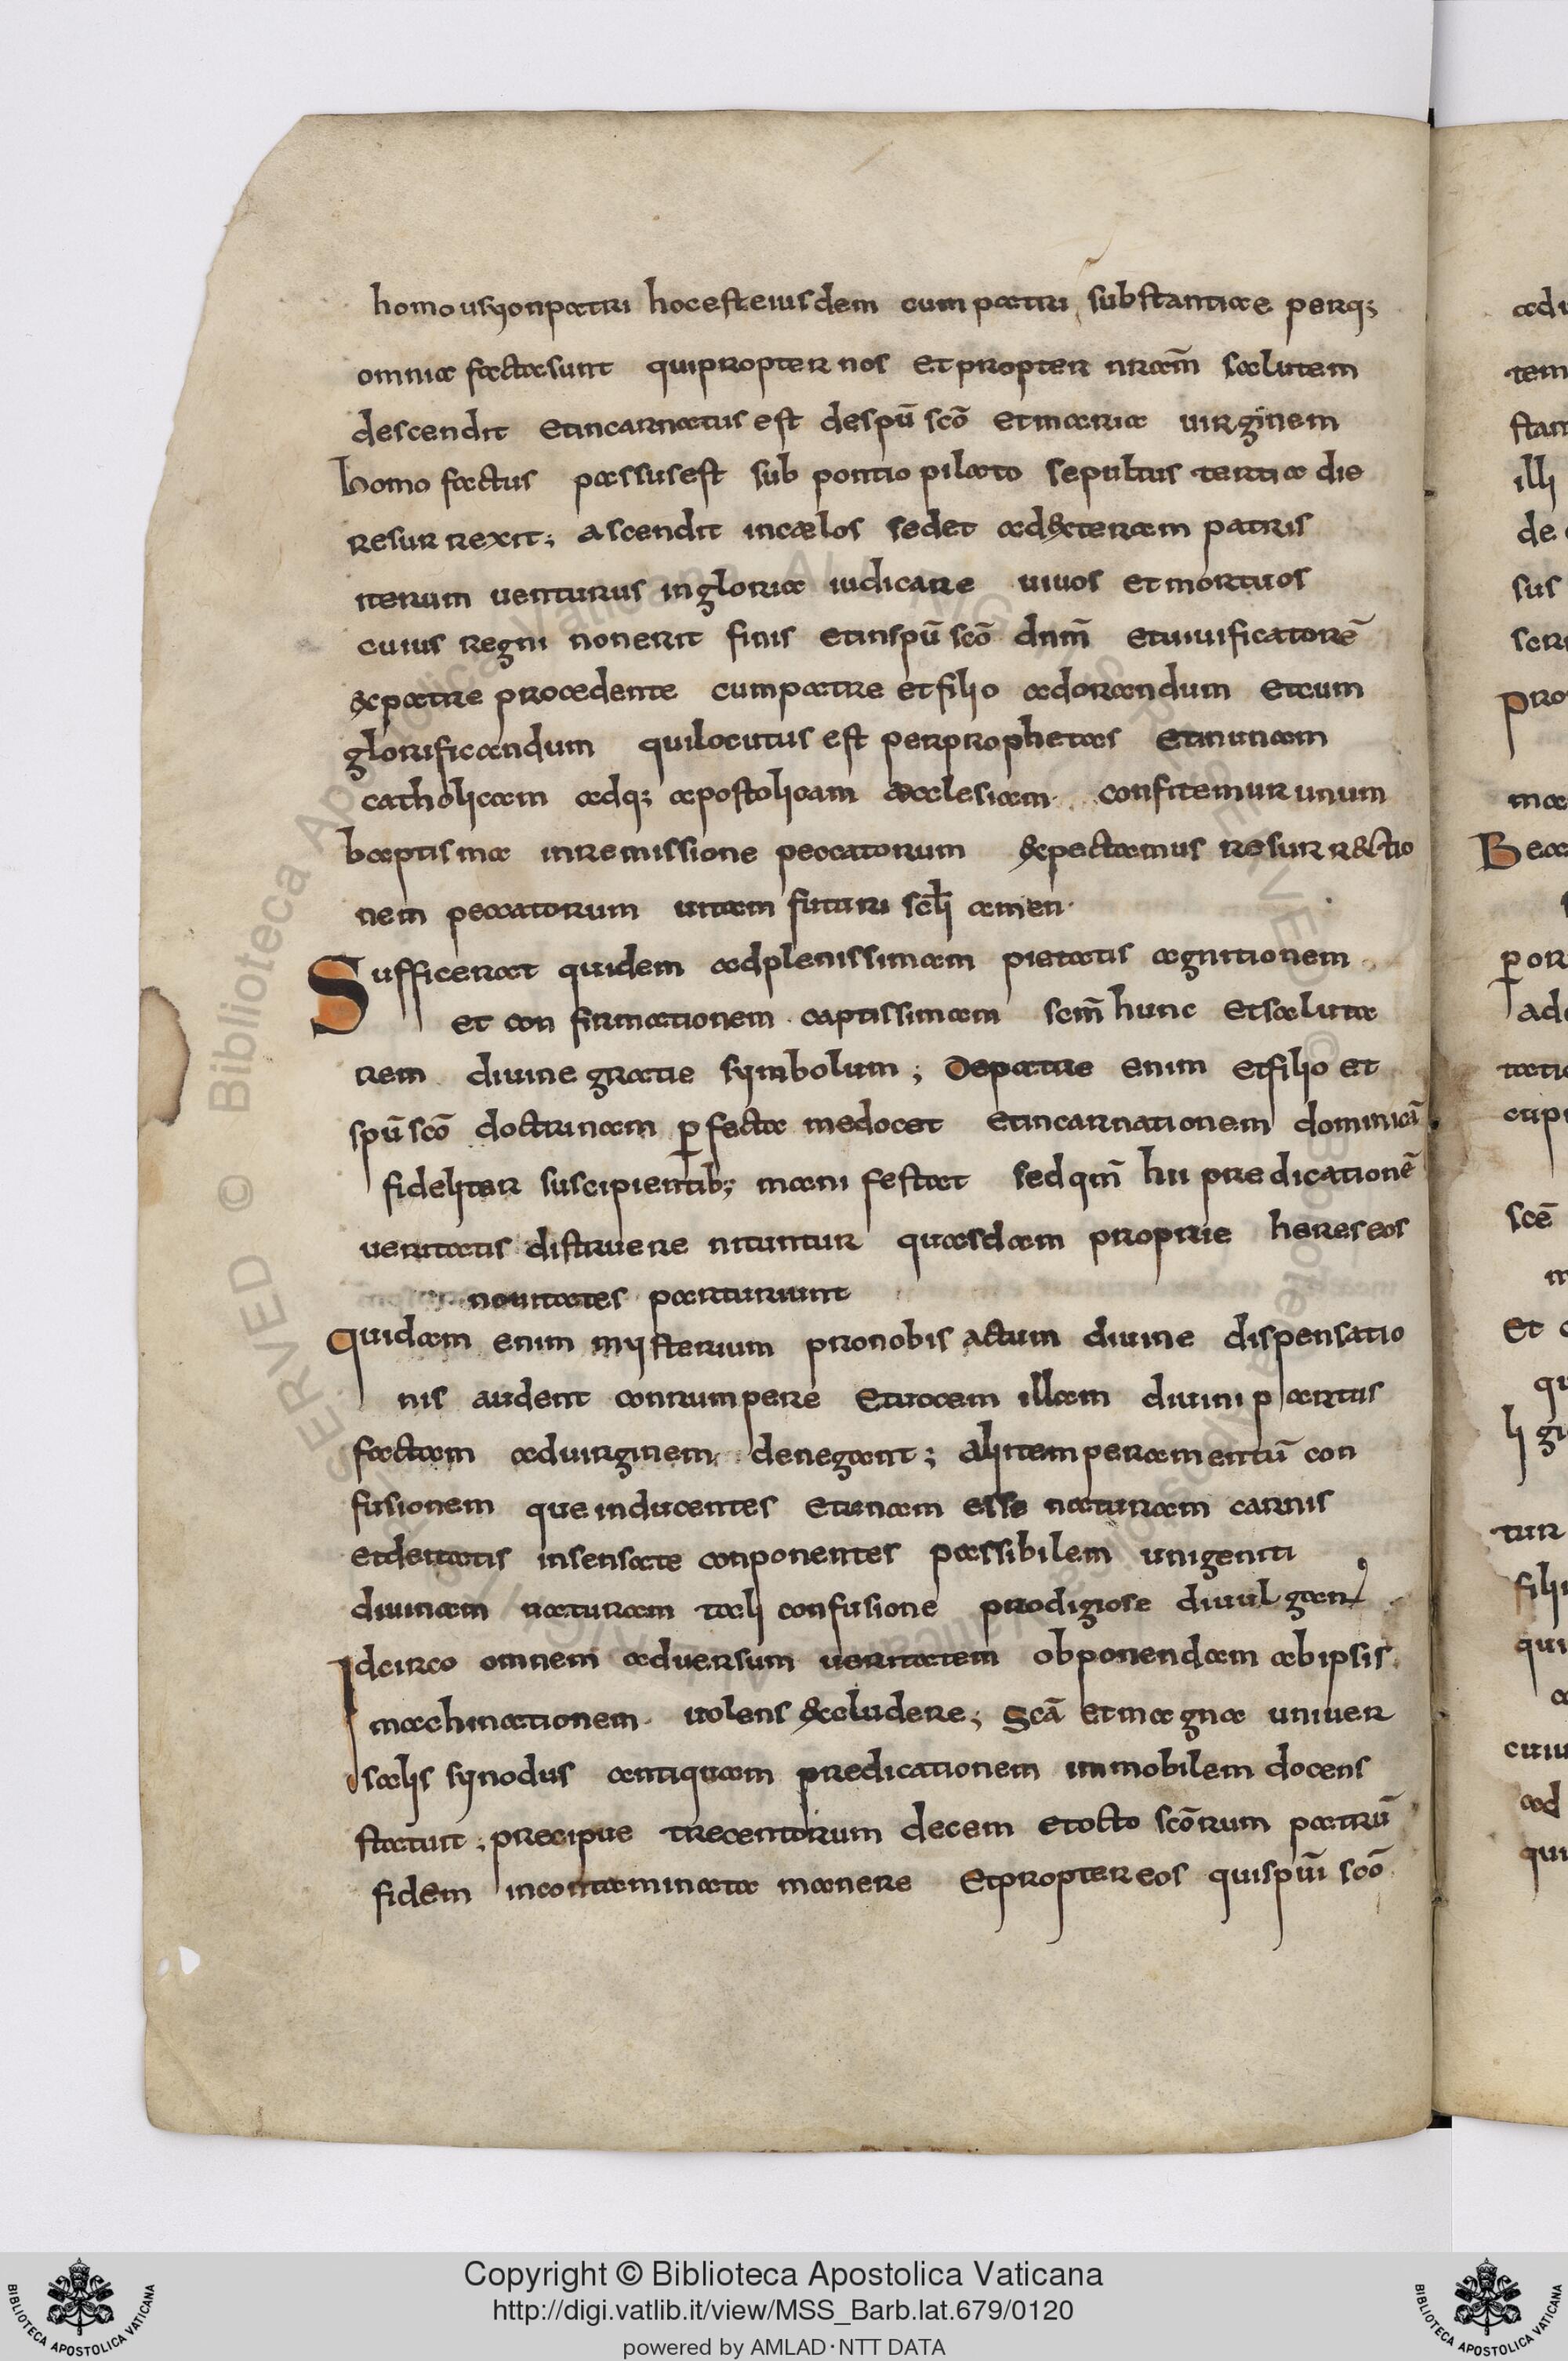 homousyonpatri hocesteiusdem cum patri substantiae perq;
omnia factasunt quipropter nos etpropter nram̄ salutem
descendit etincarnatus est despū scō etmaria uirginem
homo factus passusest sub pontio pilato sepultus tertia die
resurrexit; ascendit incælos sedet adexteram patris
iterum uenturus ingloria iudicare uiuos etmortuos
cuius regni nonerit finis etinspū scō dnm̄ etuiuificatorē
expatre procedente cumpatre etfilio adorandum etcum
glorificandum quilocutus est perprophetas etinunam
catholicam adq; apostolicam aecclesiam confitemur unum
baptisma inremissione peccatorum expectamus resurrectio
nem peccatorum uitam futuri sclī amen.
Sufficerat quidem adplenissimam pietatis agnitionem
et confirmationem captissimam scm̄ hunc etsaluta
rem diuine gratie symbolum; Depatre enim etfilio et
spū scō doctrinam ꝑfecta medocet etincarnationem dominicā
fideliter suscipientib; manifestat sed qm̄ hii predicationē
ueritatis distruere nituntur quasdam proprie hereseos
nouitates parturiunt
Quidam enim mysterium pronobis actum diuine dispensatio
nis audent conrumpere etuocem illam diuini partus
factam aduirginem denegant; alitemperamentū con
fusionem que inducentes etunam esse naturam carnis
etdeitatis insensate conponentes passibilem unigeniti
diuinam naturam tali confusione prodigiose diuulgant
Idcirco omnem aduersum ueritatem obponendam abipsis
machinationem uolens excludere; Scā etmagna uniuer
salis synodus antiquam predicationem immobilem docens
statuit; precipue trecentorum decem etocto scōrum patrū
fidem incontaminata manere etpropter eos quispūi scō
Copyright © Biblioteca Apostolica Vaticana
http://digi.vatlib.it/view/MSS_Barb.lat.679/0120
powered by AMLAD·NTT DATA
BIBLIOTECA APOSTOLICA VATICANA
BIBLIOTECA APOSTOLICA VATICANA